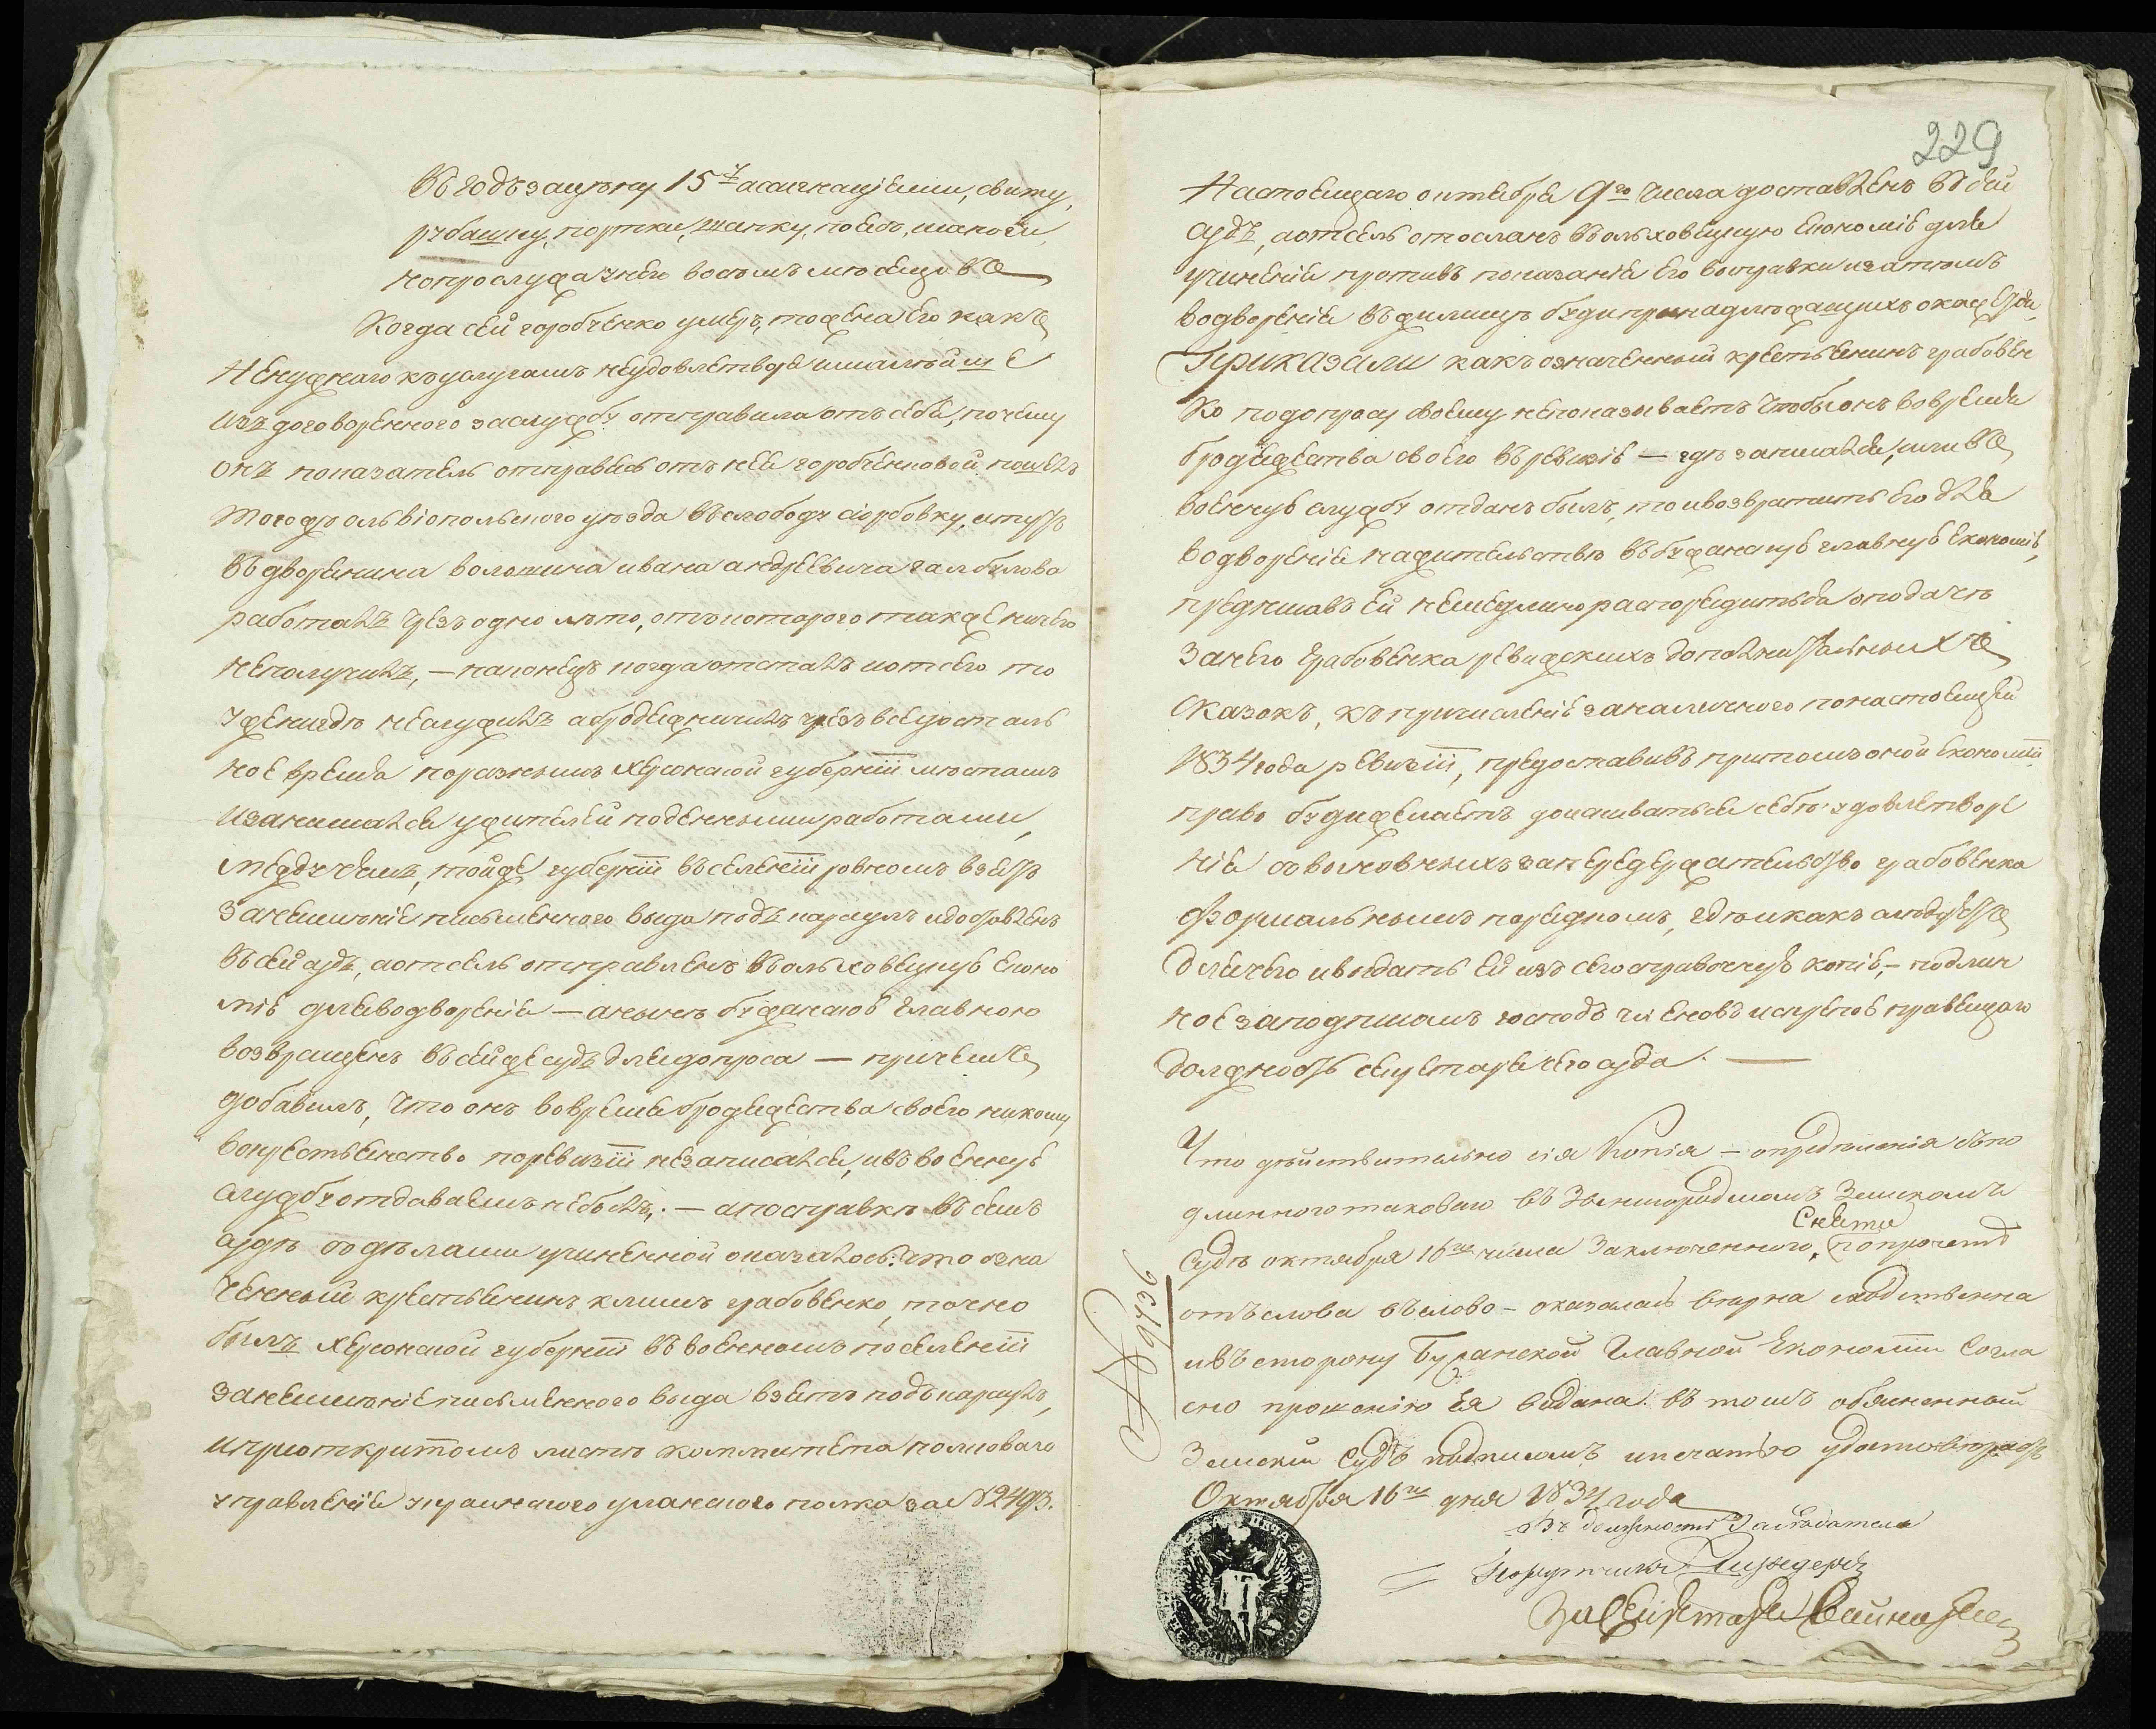 въ годъ зацену 15 ч асыгнацiями, свиту,
рубашку, портки, шапку, поясъ, исапоги,
нопрослужа унего восемъ месяцовъ
Когда сей горобченко умеръ, то жена его какъ
ненужнаго куслугамъ неудовлетворя ималейше
изъ договоренного заслужбу отправила отъ себя, почему
онъ показатель отправясь отъ нея горобченковой, пошелъ
тогоже ольвiопольского уезда въ слободу сiорбовку, итутъ
въ дворянина волошина ивана андреевича
работалъ чрезъ одно лето, откоторого также ничего
неполучилъ, — наконецъ когда отсталъ иотсего то
уже нигде неслужилъ абродяжничилъ чрезъ все досталь
ное время поразнымъ херсонской губернiи местамъ
изанимался ужителей поденными работами,
между чемъ, тойже губернiи въ селенiи ровномъ взятъ
занеименiе письменного вида подъ караулъ идоставленъ
въ сей судъ, аотсель отправленъ въ ольховецкую еконо
мiю дляводворенiя — анынъ бужанскою главною
возвращенъ въ сейже судъ длядопроса — причемъ
добавилъ, что онъ во время бродяжества своего никому
вокрестьянство поревизiи незаписался, ивъ военную
службу отдаваемъ небылъ; — апосправке въ семъ
суде съ делами учиненной оказалось: что озна
ченный крестьянинъ климъ грабовенко, точно
былъ херсонской губернiи въ военномъ поселенiи
занеименiе письменного вида взятъ подъ караулъ,
иприоткритомъ листе комитета полковаго
управленiя украинского уланского полка за № 2493.
229
Настоящаго октября 9го числа доставленъ въ сей
судъ, аотсель отосланъ въ ольховецкую економiю для
учиненiя противъ показанiя его восправки изатемъ
водворенiя въ жилищъ будипринадлежащихъ окажется,
Приказали какъ означенный крестьянинъ грабовен
ко подопросу своему непоказиваетъ чтобы онъ вовремя
бродяжества своего въ ревизiю — где записался, иливъ
военную службу отданъ былъ, то ивозвратить его для
водворенiя нажительство въ бужанскую главную економiю,
предписавъ ей немедлино распорядиться оподаче
занего грабовенка ревижскихъ дополнительныхъ
сказокъ, къ причисленiю заналичного понастоящей
1834 года ревизiи, предоставивъ притомъ оной економiи
право будижелаетъ доискиватьсе себе удовлетворе
нiя свиновныхъ запередержательство грабовенка
формальнымъ порядкомъ, где икакъ следуетъ
длячего ивыдать ей изъ сего справочную копiю, — подлин
ное заподписомъ господъ членовъ искрепою правящаго
должность секретаря сего суда. —
Что действительно сiя Копiя — определенiя съпо
длинного таковаго въ Звенигородскомъ Земскомъ
Суде октября 16го числа Заключенного, Снята попрочете
отъ слова въслово — оказалась верна сходственна
ивъ сторону Бужанской Главной Економiи Согла
сно прошенiю Ея видана. въ томъ объясненный
Земскiй Судъ подписомъ ипечатью удостоверяетъ
Октября 16го дня 1834 года
Въ должности Заседатель
Порутчикъ
За Секретаря
9736